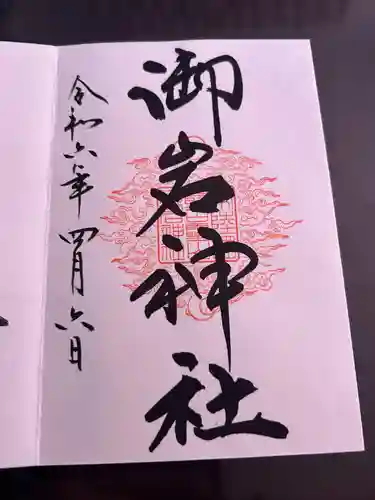 御岩神社
令和六年四月六日